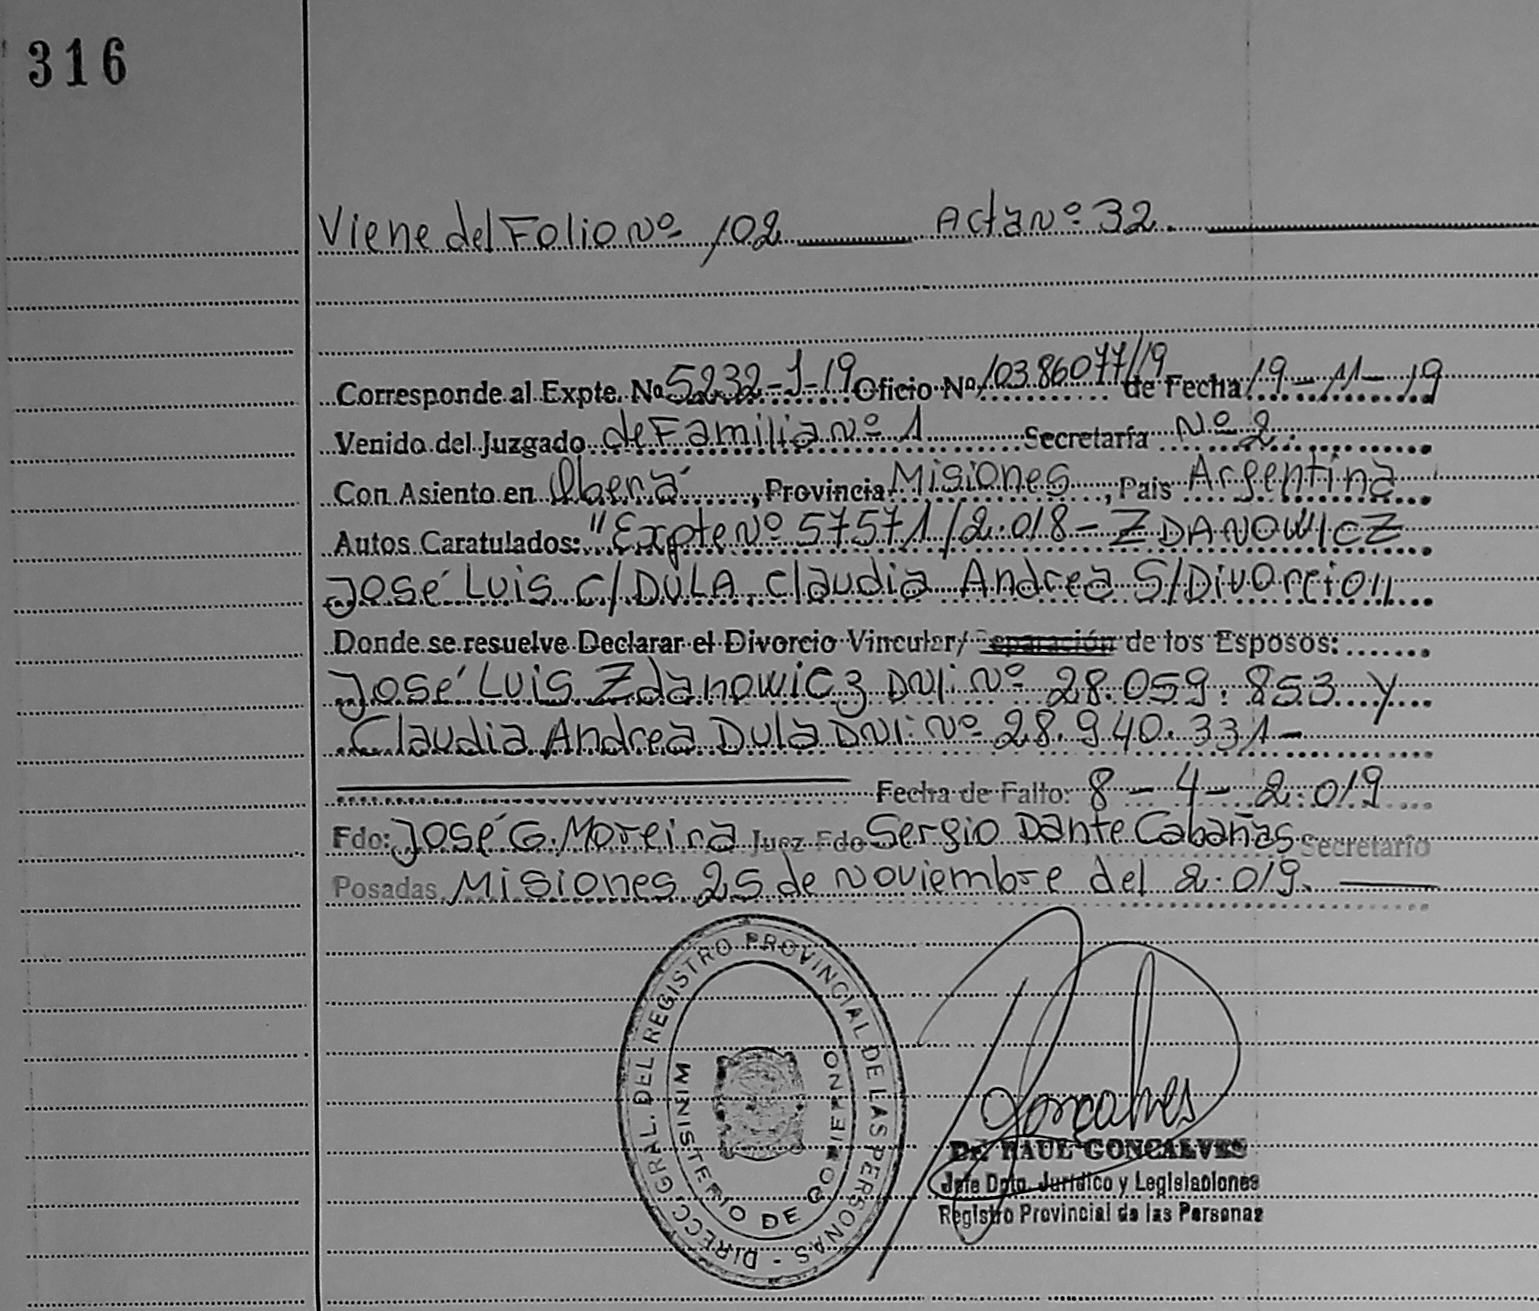 316
Viene del Folio Nº 102 Acta Nº 32.
Corresponde al Expte. Nº 5232-J-19 Oficio Nº 10386077/19 de Fecha 19-11-19
Venido del Juzgado de Familia Nº 1 Secretaría Nº 2.
Con Asiento en Oberá, Provincia Misiones, País Argentina
Autos Caratulados: "Expte Nº 57571/2.018- ZDANOWICZ
José Luis C/ DULA, Claudia Andrea S/Divorcio"
Donde se resuelve Declarar el Divorcio Vincular/ Separación de los Esposos:
José Luis Zdanowicz DNI: Nº 28.059.853 y
Claudia Andrea Dula DNI: Nº 28.940.331-
Fecha de Fallo: 8-4-2.019
Fdo: José G. Moreira Juez Fdo Sergio Dante Cabañas Secretario
Posadas, Misiones 25 de Noviembre del 2.019.
DIRECC. GRAL. DEL REGISTRO PROVINCIAL DE LAS PERSONAS -
MINISTERIO DE GOBIERNO
Goncalves
Dr. RAUL GONCALVES
Jefe Dpto. Jurídico y Legislaciones
Registro Provincial de las Personas